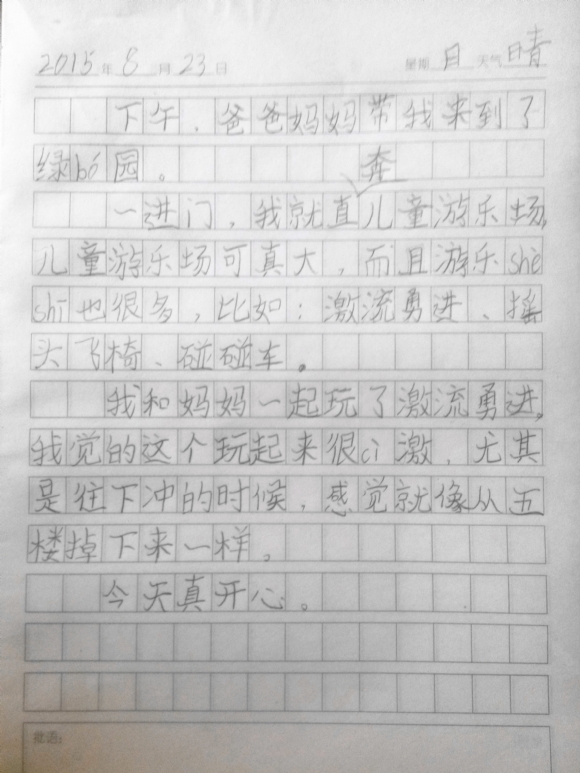 2015年8月23日 星期日 天气晴
下午，爸爸妈妈带我来到了
绿bó园。
奔
一进门，我就直儿童游乐场，
儿童游乐场可真大，而且游乐shè
shī也很多，比如：激流勇进、摇
头飞椅、碰碰车。
我和妈妈一起玩了激流勇进，
我觉的这个玩起来很cì激，尤其
是往下冲的时候，感觉就像从五
楼掉下来一样。
今天真开心。
批语：